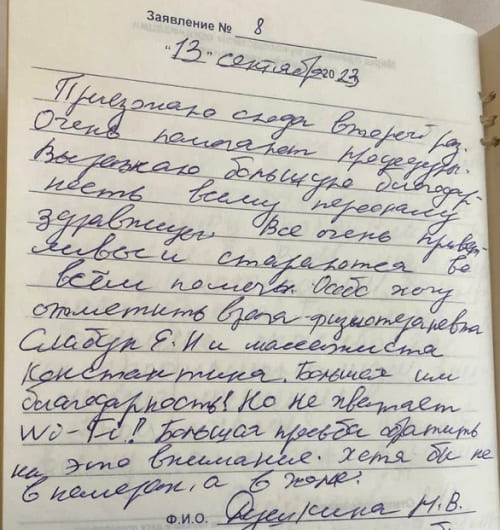 Заявление № 8
"13" сентября 2023
Приезжаю сюда второй раз.
Очень помогают процедуры.
Выражаю большую благодар-
ность всему персоналу
здравницы. Все очень привет-
ливы и стараются во
всём помочь. Особо хочу
отметить врача-физиотерапевта
Слабук Е.Н и массажиста
Константина. Большая им
благодарность! Но не хватает
Wi-Fi! Большая просьба обратить
на это внимание. Хотя бы не
в номерах, а в холле.
Ф.И.О. Н.В.